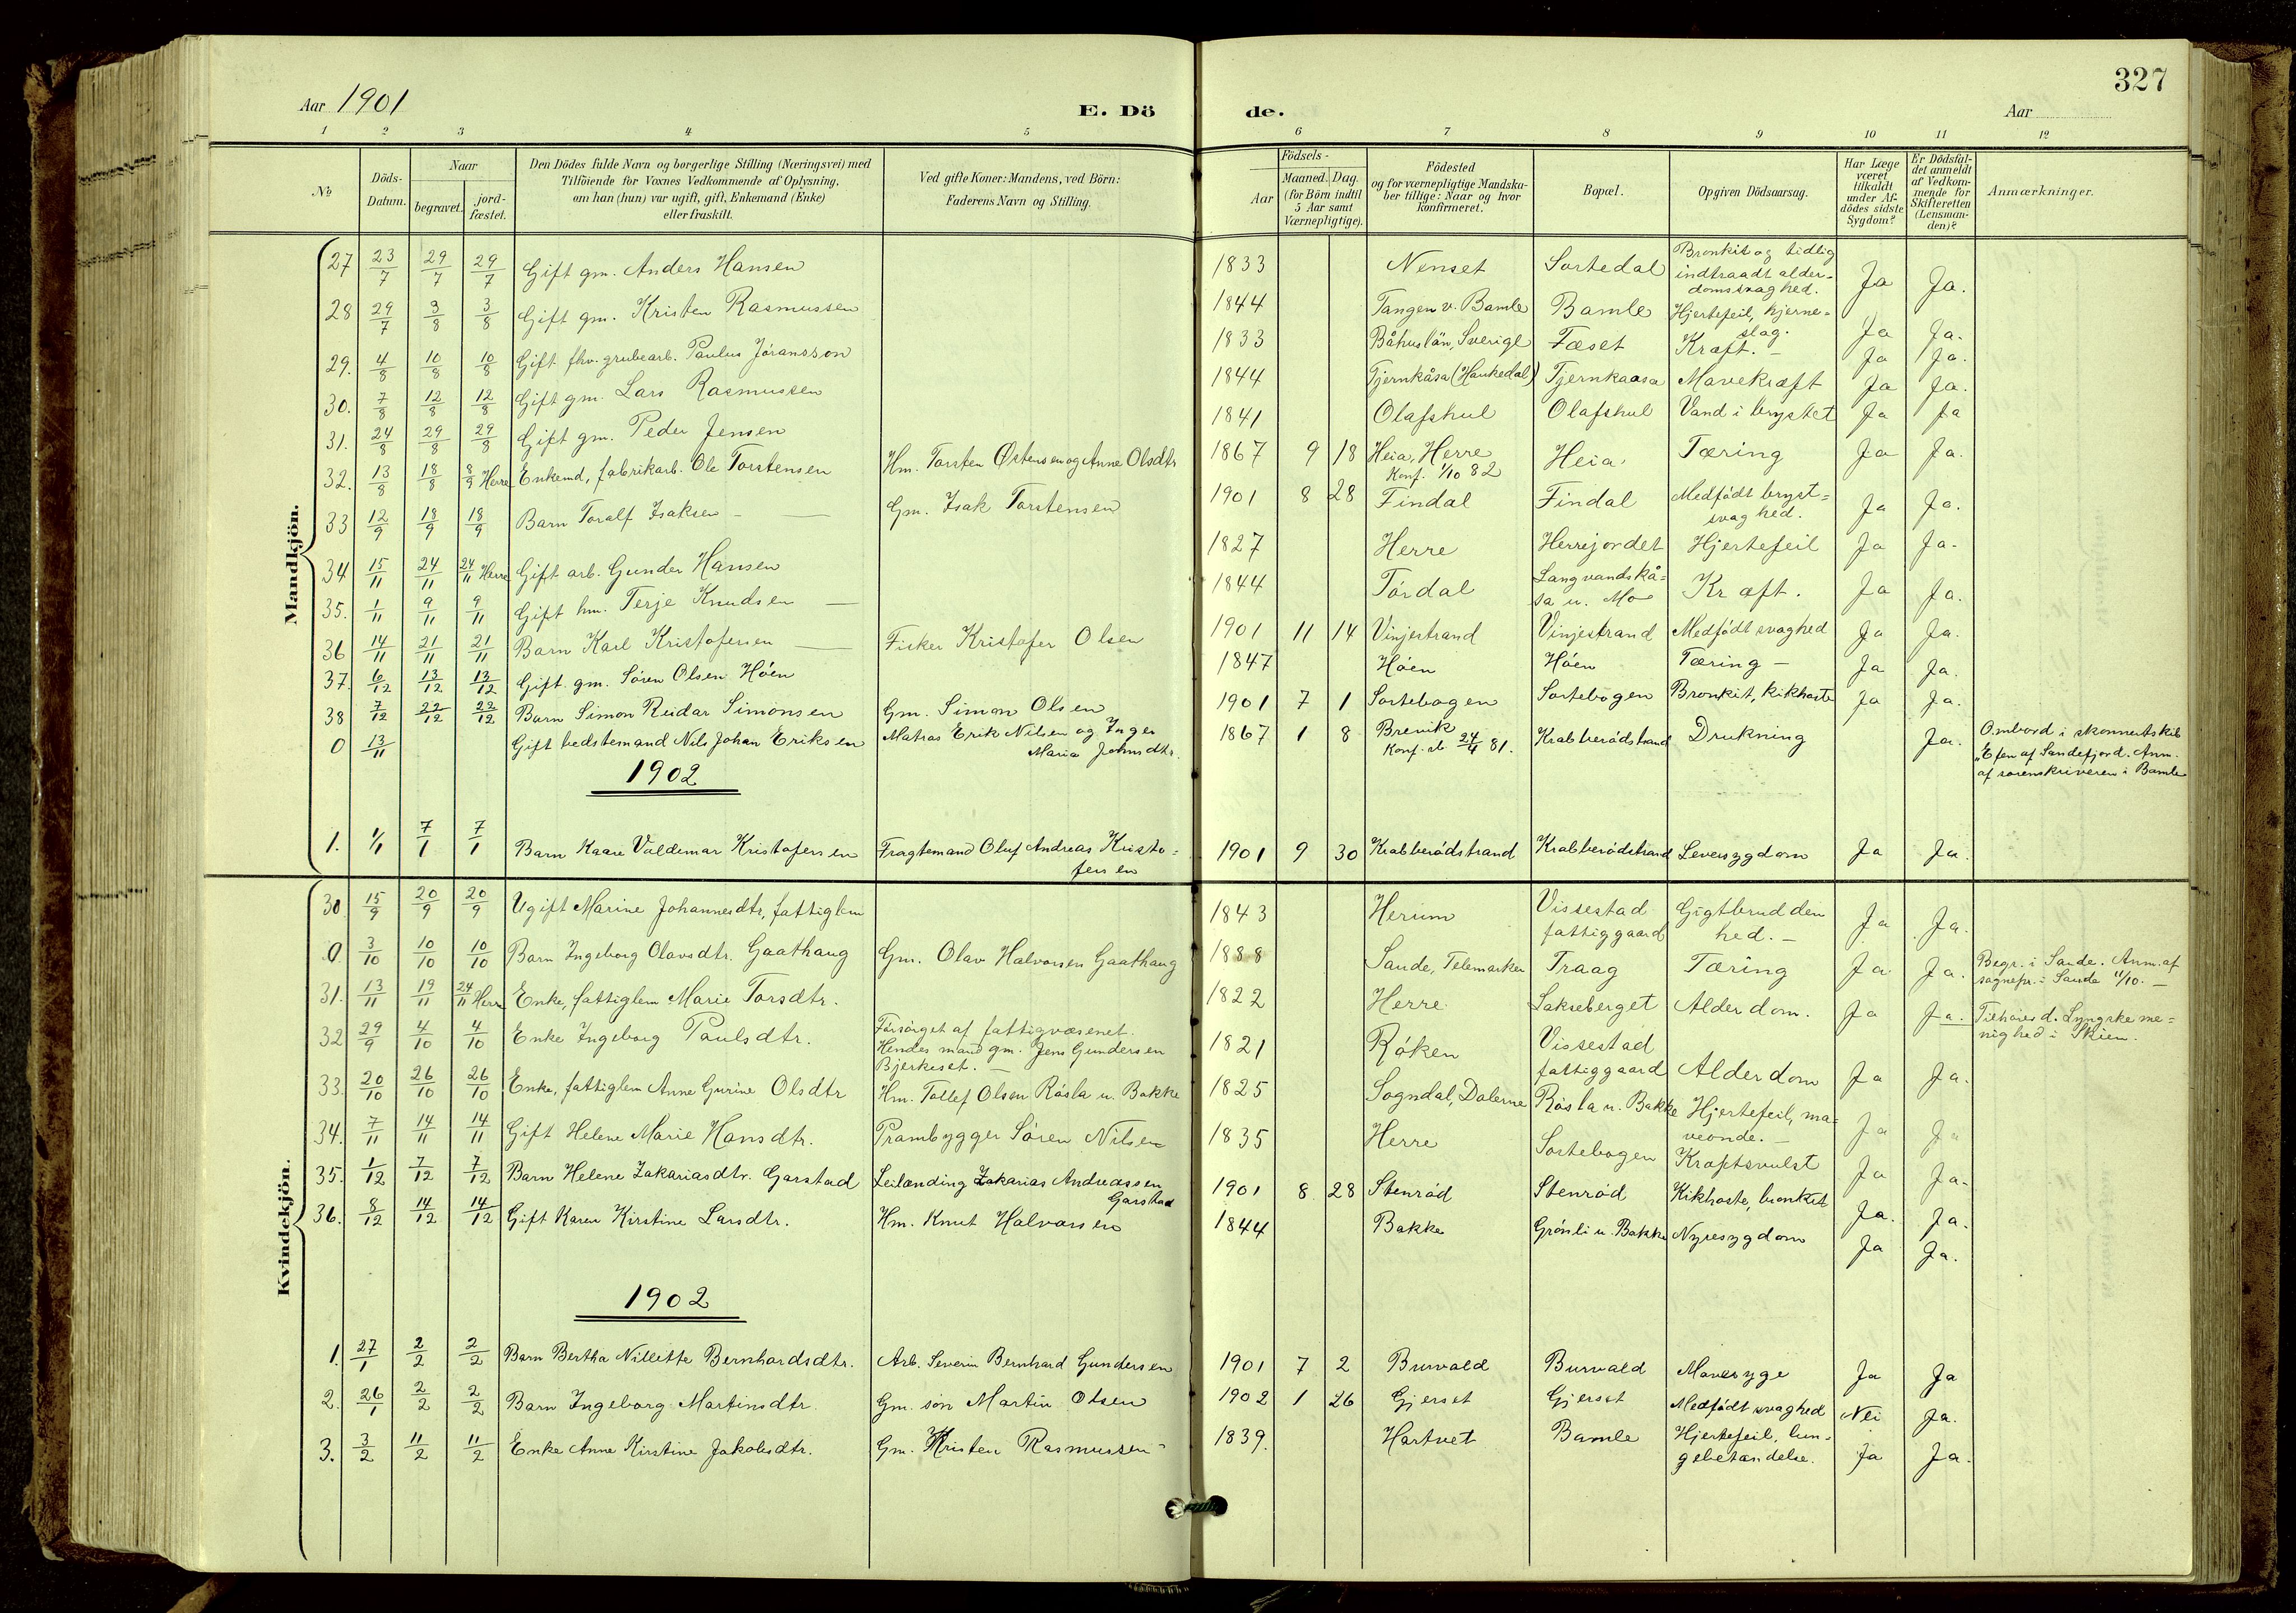 327
Aar 1901 E. Dö de. Aar
1 2 3 4 5 6 7 8 9 10 11 12
No
Döds-
Datum.
Naar
begravet.
jord-
fæstet.
Den Dödes fulde Navn og borgerlige Stilling (Næringsvei) med
Tilföiende for Voxnes Vedkommende af Oplysning,
om han (hun) var ugift, gift, Enkemand (Enke)
eller fraskilt.
Ved gifte Koner: Mandens, ved Börn:
Faderens Navn og Stilling.
Födsels-
Aar
Maaned. Dag.
(for Börn indtil
5 Aar samt
Værnepligtige).
Födested
og for værnepligtige Mandska-
ber tillige: Naar og hvor
konfirmeret.
Bopæl.
Opgiven Dödsaarsag.
Har Læge
været
tilkaldt
under Af-
dödes sidste
Sygdom?
Er Dödsfal-
det anmeldt
af Vedkom-
mende for
Skifteretten
(Lensman-
den)?
Anmærkninger.
Mandkjön.
27 23/7 29/7 29/7 Gift gm. Anders Hansen 1833 Nenset Sortedal Bronkit og tidlig
indtraadt alder-
domssvaghed. Ja Ja.
28 29/7 3/8 3/8 Gift gm. Kristen Rasmussen 1844 Tangen v. Bamle Bamle Hjertefeil, hjerne=
slag. Ja Ja.
29. 4/8 10/8 10/8 Gift fhv. grubearb. Paulus Jóransson 1833 Båhuslän, Sverige Fæset Kræft. – Ja Ja.
30. 7/8 12/8 12/8 Gift gm. Lars Rasmussen 1844 Tjernkåsa (Hankedal) Tjernkaasa Mavekræft Ja Ja.
31. 24/8 29/8 29/8 Gift gm. Peder Jensen 1841 Olafskul Olafskul Vand i brystet Ja Ja
32. 13/8 18/8 8/9 Herre Enkemd, fabrikarb. Ole Torstensen Hm. Torsten Østensen og Anne Olsdtr 1867 9 18 Heia, Herre
Konf. 1/10 82 Heia. Tæring Ja Ja.
33 12/9 18/9 18/9 Barn Toralf Isaksen – — Gm. Isak Torstensen 1901 8 28 Findal Findal Medfödt bryst=
svaghed. Ja Ja.
34 15/11 24/11 24/11 Herre Gift arb. Gunder Hansen 1827 Herre Herrejordet Hjertefeil Ja Ja.
35. 1/11 9/11 9/11 Gift hm. Terje Knudsen — 1844 Tórdal Langvandskå=
sa u. Mo Kræft. Ja Ja.
36 14/11 21/11 21/11 Barn Karl Kristofersen — Fisker Kristofer Olsen 1901 11 14 Vinjestrand Vinjestrand Medfödt svaghed Ja Ja.
37. 6/12 13/12 13/12 Gift gm. Sören Olsen Höen 1847 Höen Höen Tæring – Ja Ja.
38 7/12 22/12 22/12 Barn Simon Reidar Simonsen Gm. Simon Olsen 1901 7 1 Sortebogen Sortebogen Bronkit, kikhoste Ja Ja.
0 13/11 Gift bedstemand Nils Johan Eriksen Matros Erik Nilsen og Inger
Maria Johnsdtr. 1867 1 8 Brevik
Konf. 24/4 81. Krabberödstrand Drukning Ja. Ombord i skonnertskib
"Efen af Sandefjord. Anm.
af sorenskriveren i Bamle
1902
1. 1/1 7/1 7/1 Barn Kaare Valdemar Kristofersen Fragtemand Oluf Andreas Kristo=
fersen 1901 9 30 Krabberödstrand Krabberödstrand Leversygdom Ja Ja.
Kvindekjön.
30. 15/9 20/9 20/9 Ugift Marine Johannesdtr, fattiglem 1843 Herum Vissestad
fattiggaard Gigtbrudden
hed. – Ja Ja.
0. 3/10 10/10 10/10 Barn Ingeborg Olavsdtr. Gaathaug Gm. Olav Halvorsen Gaathaug 1888 Sande, Telemarken Traag Tæring Ja Ja. Begr. i Sande. Anm. af
sognepr. i Sande 11/10. –
31. 13/11 19/11 24/11 Herre Enke, fattiglem Marie Torsdtr. 1822 Herre Lakseberget Alderdom. Ja Ja. Tilhörer d. Lyngske me=
nighed i Skien.
32 29/9 4/10 4/10 Enke Ingeborg Paulsdtr. Försörget af fattigvæsenet.
Hendes mand gm. Jens Gundersen
Bjerkeset. – 1821 Röken Vissestad
fattiggaard Alderdom Ja Ja.
33. 20/10 26/10 26/10 Enke, fattiglem Anne Gurine Olsdtr Hm. Tollef Olsen Rösla u. Bakke 1825 Sogndal, Dalerne Rösla u. Bakke Hjertefeil, ma=
veonde. – Ja Ja
34. 7/11 14/11 14/11 Gift Helene Marie Hansdtr. Prambygger Sören Nilsen 1835 Herre Sortebogen Kræftsvulst Ja Ja.
35. 1/12 7/12 7/12 Barn Helene Zakariasdtr. Garstad Leilænding Zakarias Andreassen
Garstad 1901 8 28 Stenröd Stenröd Kikhoste, bronkit Ja. Ja.
36. 8/12 14/12 14/12 Gift Karen Kirstine Larsdtr. Hm. Knut Halvorsen 1844 Bakke Grönli u. Bakke Nyresygdom Ja Ja.
1902
1. 27/1 2/2 2/2 Barn Bertha Nillette Bernhardsdtr. Arb. Severin Bernhard Gundersen 1901 7 2 Burvald Burvald Mavesyge Ja Ja
2. 26/1 2/2 2/2 Barn Ingeborg Martinsdtr. Gm. sön Martin Olsen 1902 1 26 Gjerset Gjerset Medfödt svaghed Nei Ja.
3. 3/2 11/2 11/2 Enke Anne Kirstine Jakobsdtr. Gm. Kristen Rasmussen 1839. Hartvet Bamle Hjertefeil, lun=
gebetændelse. Ja Ja.